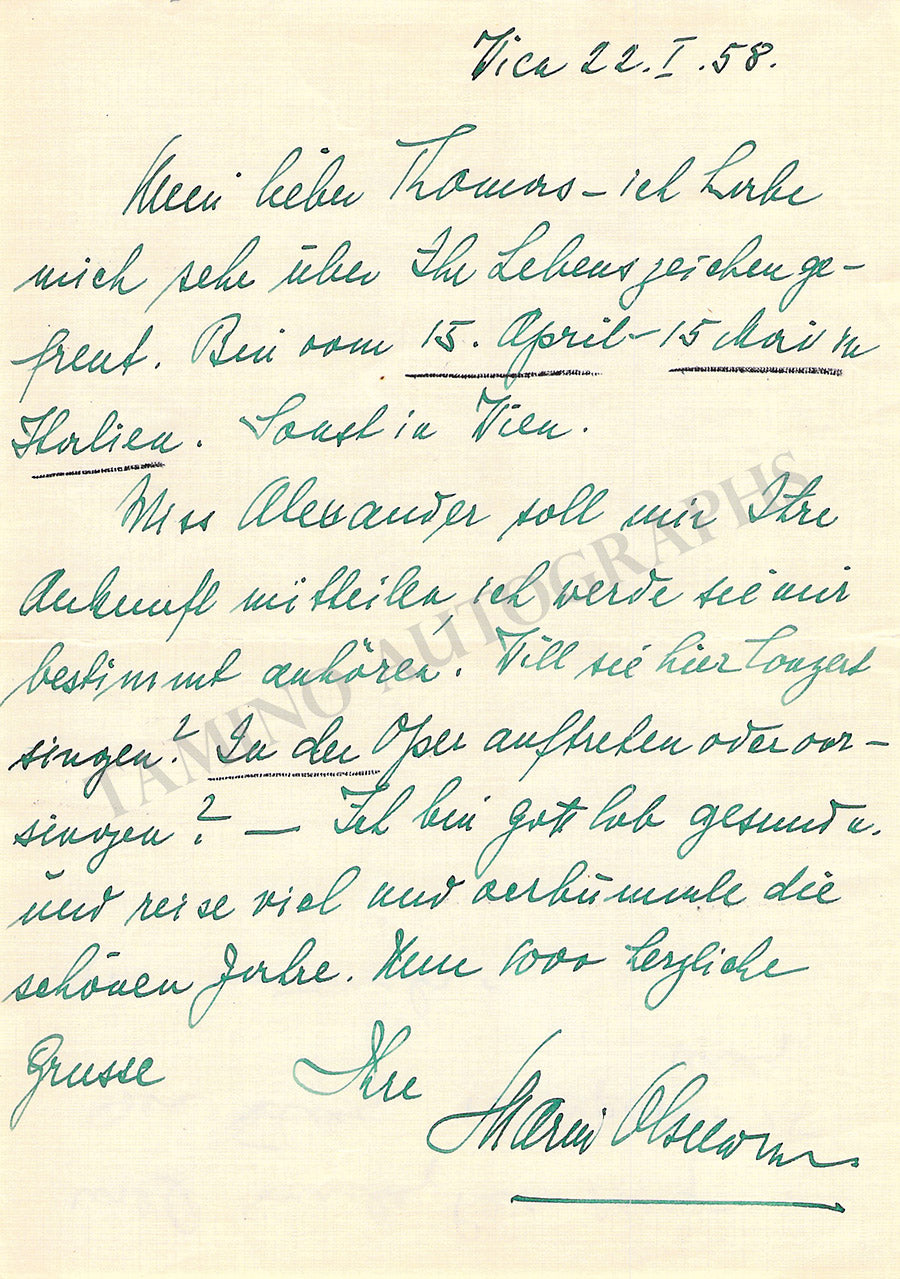 Wien 22.I.58.
Mein lieber Thomas – ich habe
mich sehr über Ihr Lebenszeichen ge-
freut. Bin vom 15. April – 15 Mai in
Italien. Sonst in Wien.
Miss Alexander soll mir Ihre
Ankunft mitteilen ich werde sie mir
bestimmt anhören. Will sie hier Conzert
singen? In der Oper auftreten oder vor-
singen? — Ich bin gottlob gesund u.
und reise viel und verbummle die
schönen Jahre. Nun 1000 herzliche
Grusse Ihre
Maria
TAMINO AUTOGRAPHS